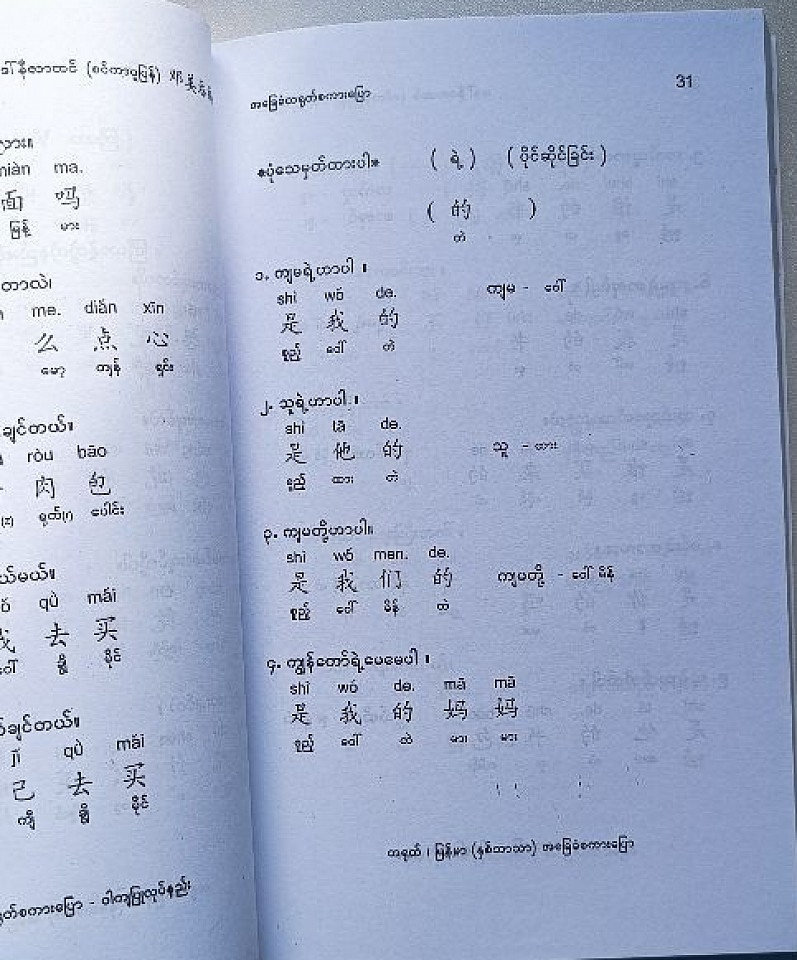 ဒေါ်နီလာထင် (စင်ကာပူပြန်)
miàn ma.
面 吗
မြန့် မား
me. diǎn xīn
么 点 心
မော့ တျန် ရှင်း
ချင်တယ်။
ròu bāo
肉 包
ရုတ်(ဂ) ပေါင်း
ယ်မယ်။
qù mǎi
我 去 买
ဝေါ် ချွို့ မိုင်
ချင်တယ်။
jǐ qù mǎi
己 去 买
ကျီ ချွို့ မိုင်
ရုတ်စကားပြော - ဝါကျပြုလုပ်နည်း
အခြေခံတရုတ်စကားပြော 31
*ပုံသေမှတ်ထားပါ* ( ရဲ့ ) ( ပိုင်ဆိုင်ခြင်း )
( 的 )
တဲ
၁. ကျမရဲ့ဟာပါ ။
shì wǒ de. ကျမ - ဝေါ်
是 我 的
စှည့် ဝေါ် တဲ
၂. သူရဲ့ဟာပါ ။
shì tā de.
是 他 的 သူ - ထား
စှည့် ထား တဲ
၃. ကျမတို့ဟာပါ။
shì wǒ men. de.
是 我 们 的 ကျမတို့ - ဝေါ်မိန်
စှည့် ဝေါ် မိန် တဲ
၄. ကျွန်တော်ရဲ့မေမေပါ ။
shì wǒ de. mā mā
是 我 的 妈 妈
စှည့် ဝေါ် တဲ မား မား
တရုတ် ၊ မြန်မာ (နှစ်ဘာသာ) အခြေခံစကားပြော